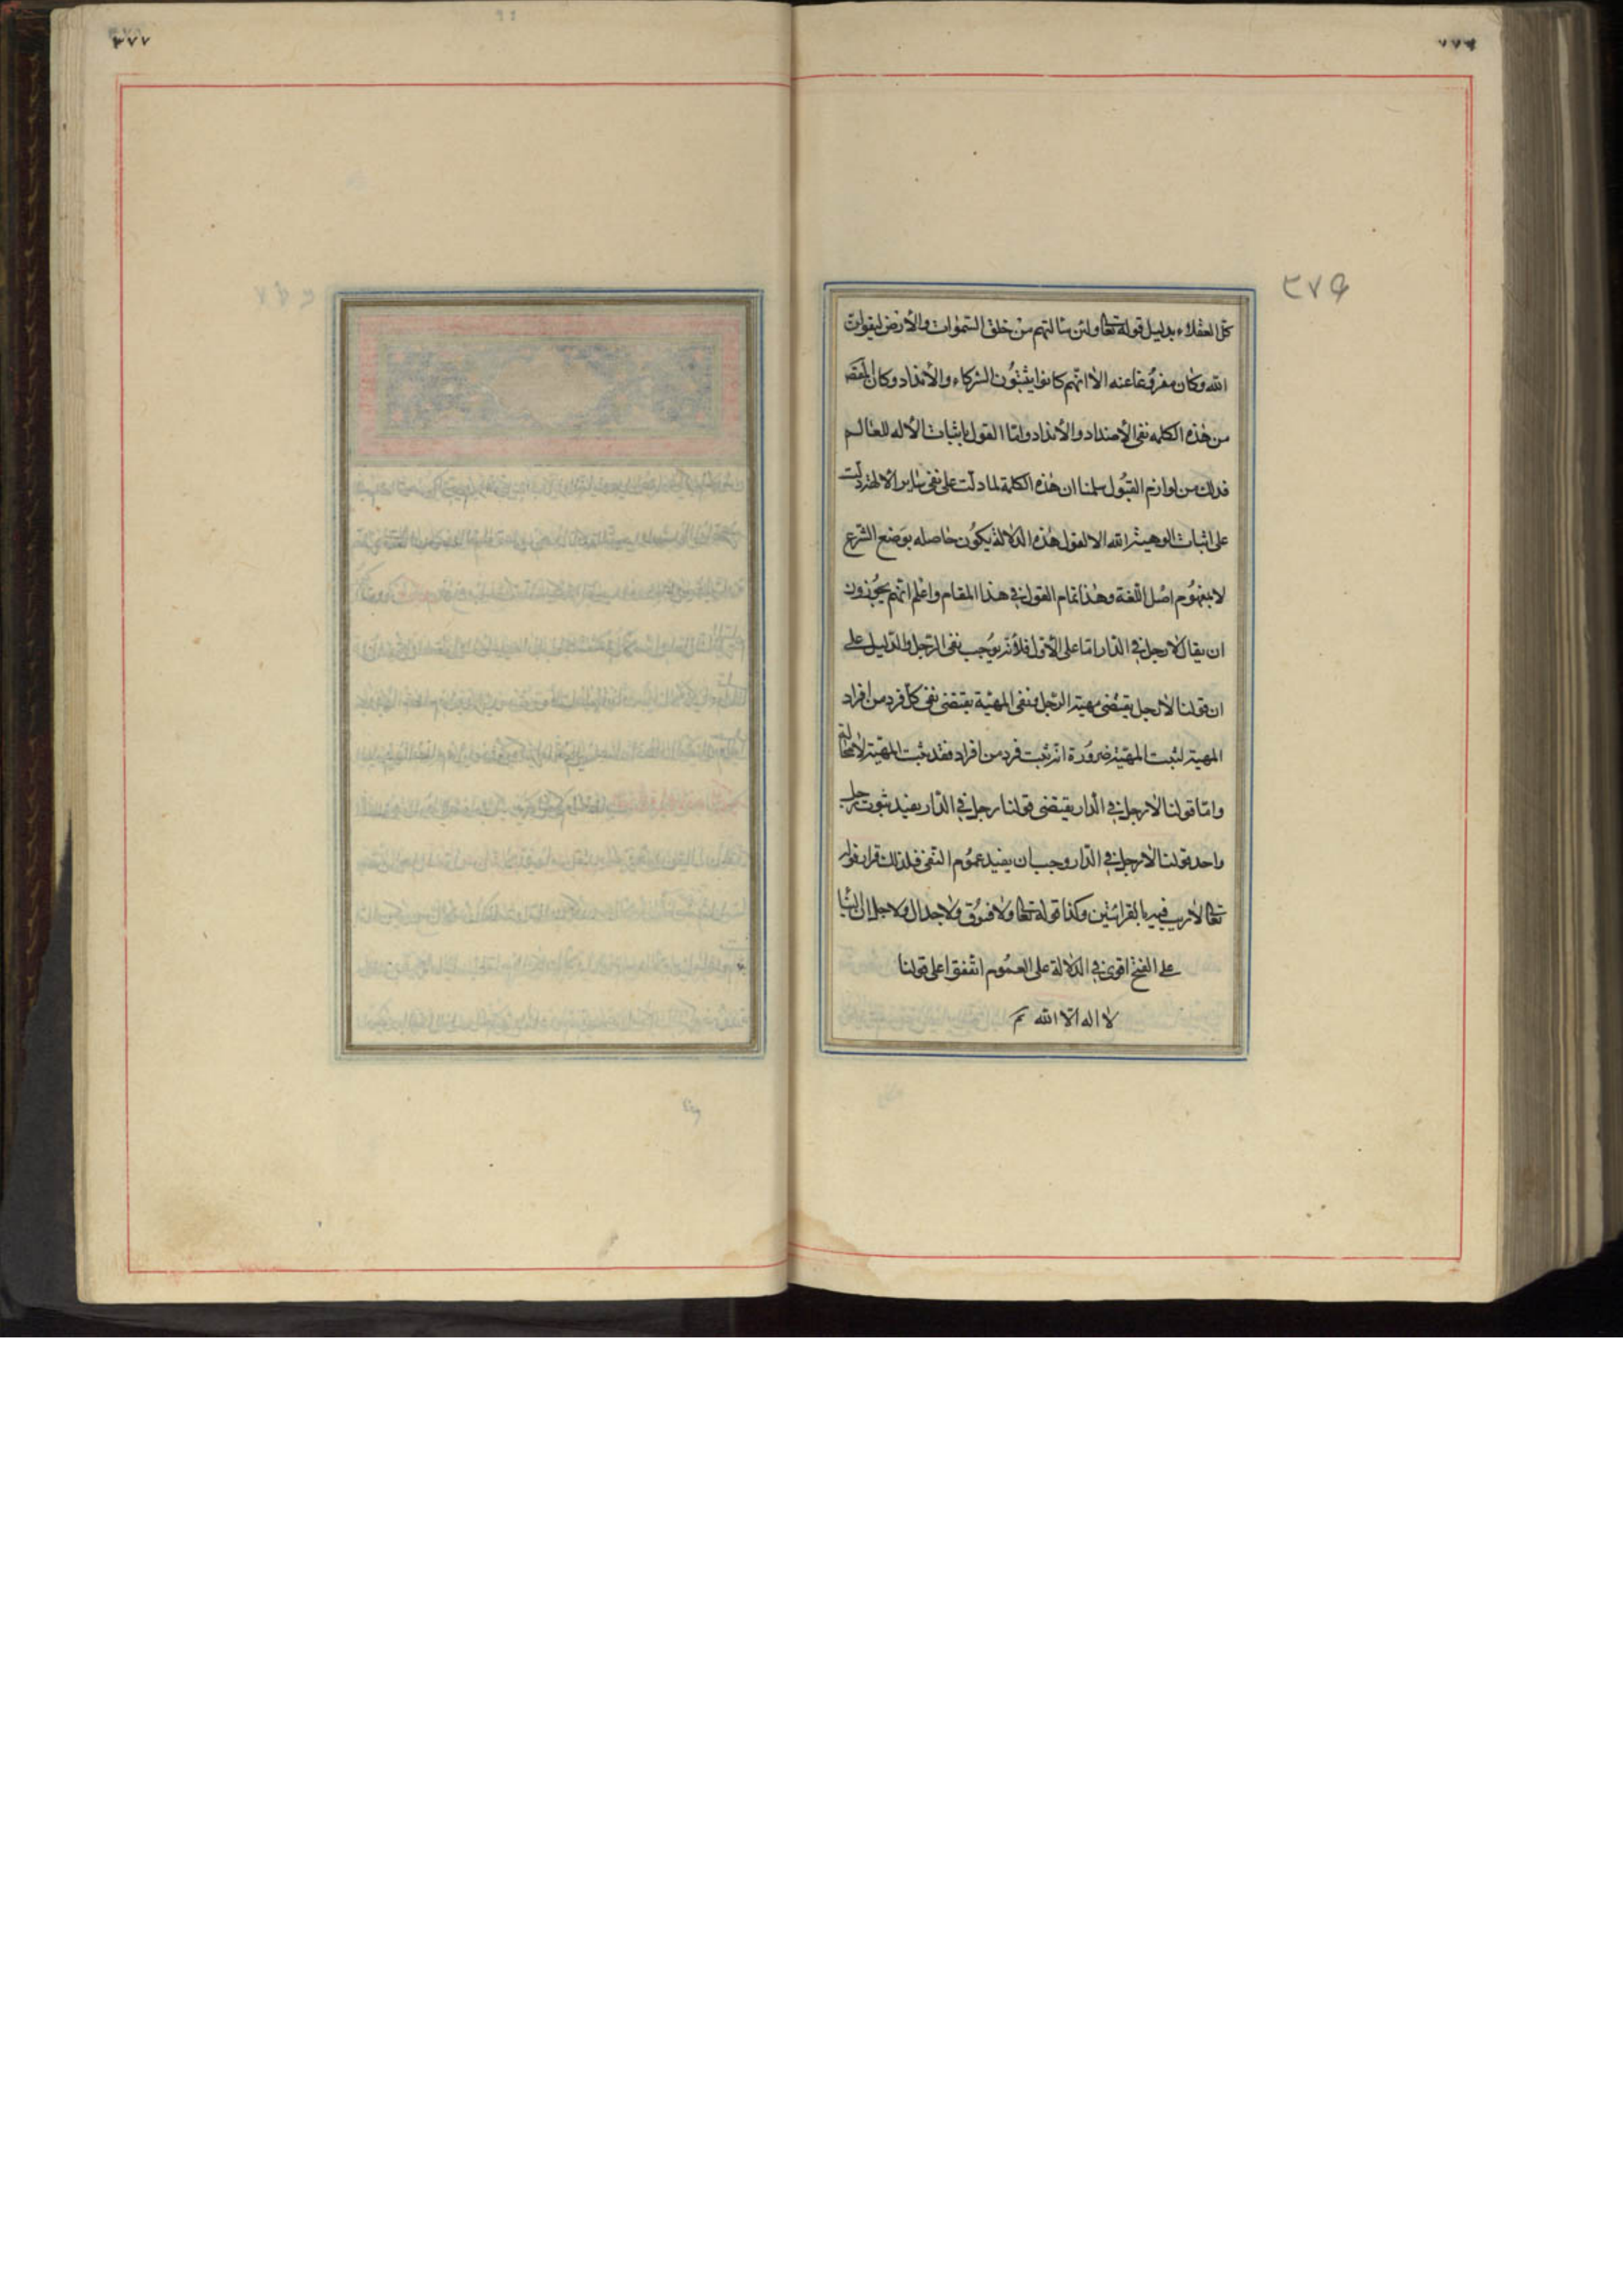 ٣٧٦
كل العقلاء بدليل قوله تعا ولئن سالتهم من خلق السموات والأرض ليقولن
الله وكان مفروغا عنه الا انهم كانوا يثبتون الشركاء والأنداد وكان المقصد
من هذه الكلمه نفى الأضداد والأنداد واما القول باثبات الأله للعالم
فذلك من لوازم القبول سلمنا ان هذه الكلمة لما دلت على نفى ساير الألهة دلت
على اثبات الوهية الله الا لقول هذه الدلالة يكون حاصله بوضع الشرع
لا بمفهوم اصل اللغة وهذا تمام القول في هذا المقام واعلم انهم يجوزون
ان يقال لا رجل في الدار اما على الأول فلأنه يوجب نفى الرجل والدليل على
ان قولنا لا رجل يقتضى مهية الرجل فنفى المهية يقتضى نفى كل فرد من افراد
المهية لثبت المهية ضرورة انه ثبت فرد من افراد فقد ثبت المهية لا محالة
واما قولنا لا رجل في الدار يقتضى قولنا رجل في الدار يفيد ثبوت رجل
واحد قولنا لا رجل في الدار وجب ان يفيد عموم النفى فلذلك قراء قوله
تعا لا ريب فيه بالقرائتين وكذا قوله تعا ولا فسوق ولا جدال ولا جل ان البنا
على الفتح اقوى في الدلالة على العموم اتفقوا على قولنا
لا اله الا الله
٣٧٧